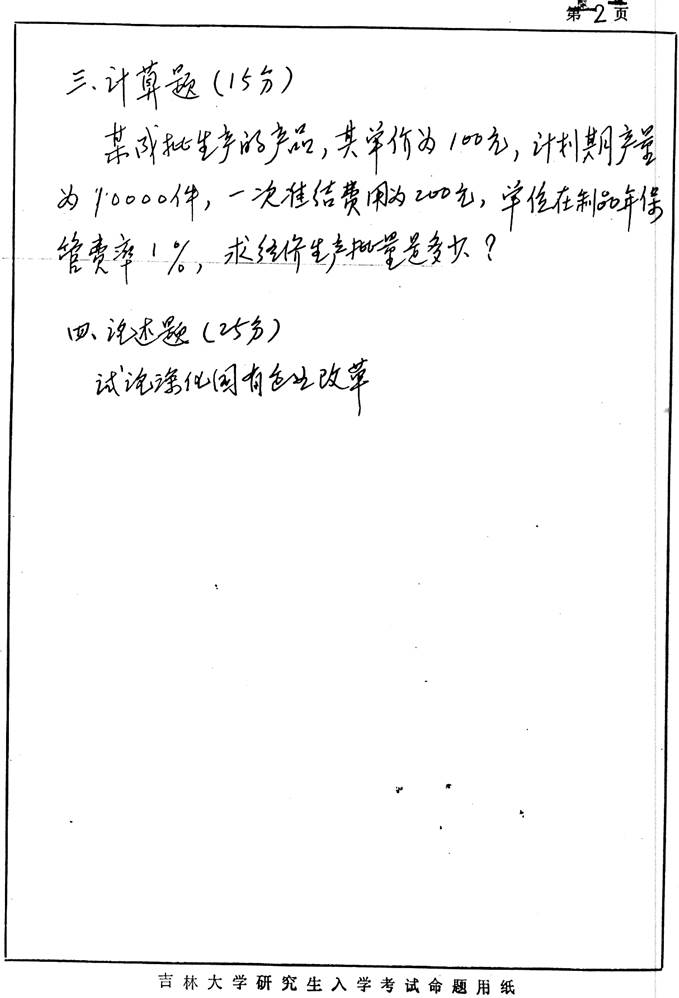 第2页
三、计算题（15分）
某成批生产的产品，其单价为100元，计划期产量
为10000件，一次准结费用为200元，单位在制品年保
管费率1%，求经济生产批量是多少？
四、论述题（25分）
试论深化国有企业改革
吉林大学研究生入学考试命题用纸